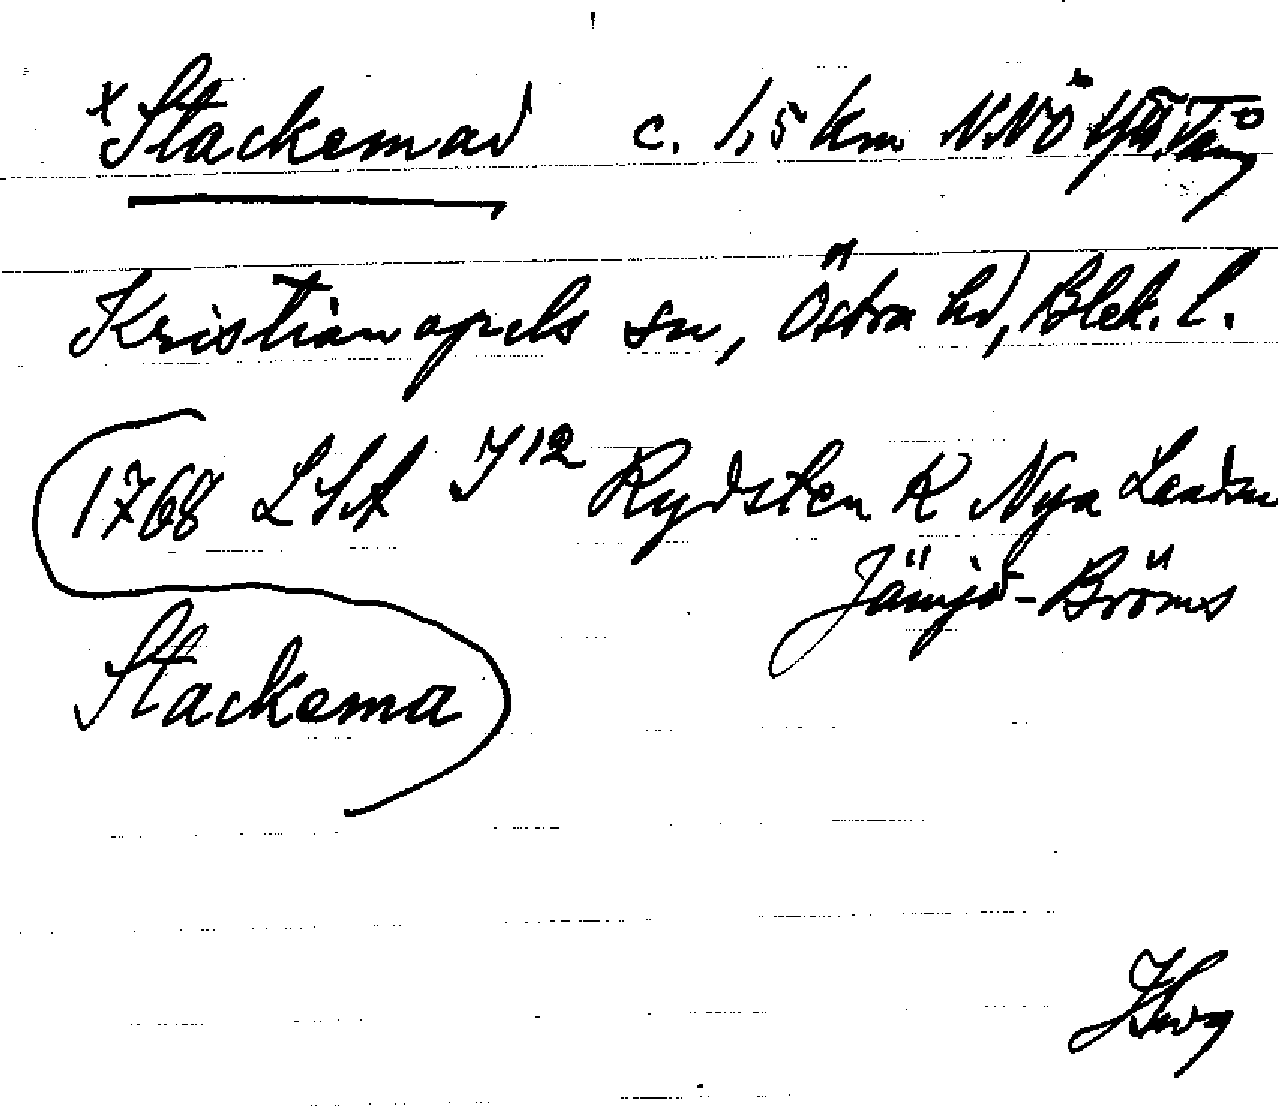 x Stackemad c. 1,5 km NNÖ
Kristianopels sn, Östra hd, Blek. l.
1768 LSA J12 Rydsten K Nya Landsv
Jämjö-Bröms
Stackema